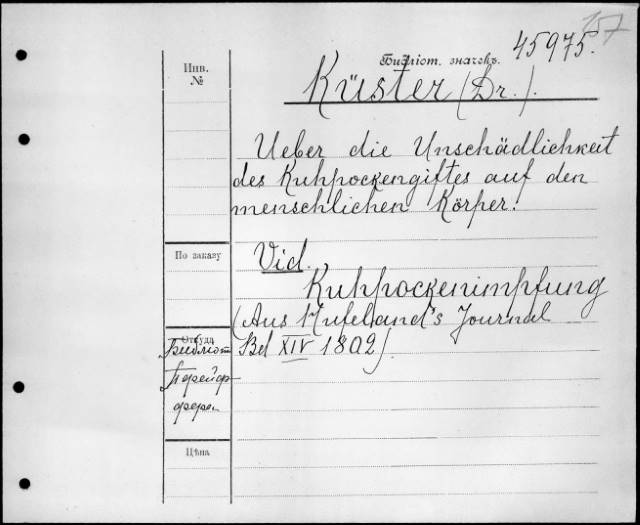 45975.
157
Библіот. значекъ.
Инв.
№
Küster (Dr.).
Ueber die Unschädlichkeit
des Kuhpockengiftes auf den
menschlichen Körper.
По заказу
Vid.
Kuhpockenimpfung
(Aus Hufeland's Journal
Bd XIV 1802).
Откуда
Библіот
Цѣна